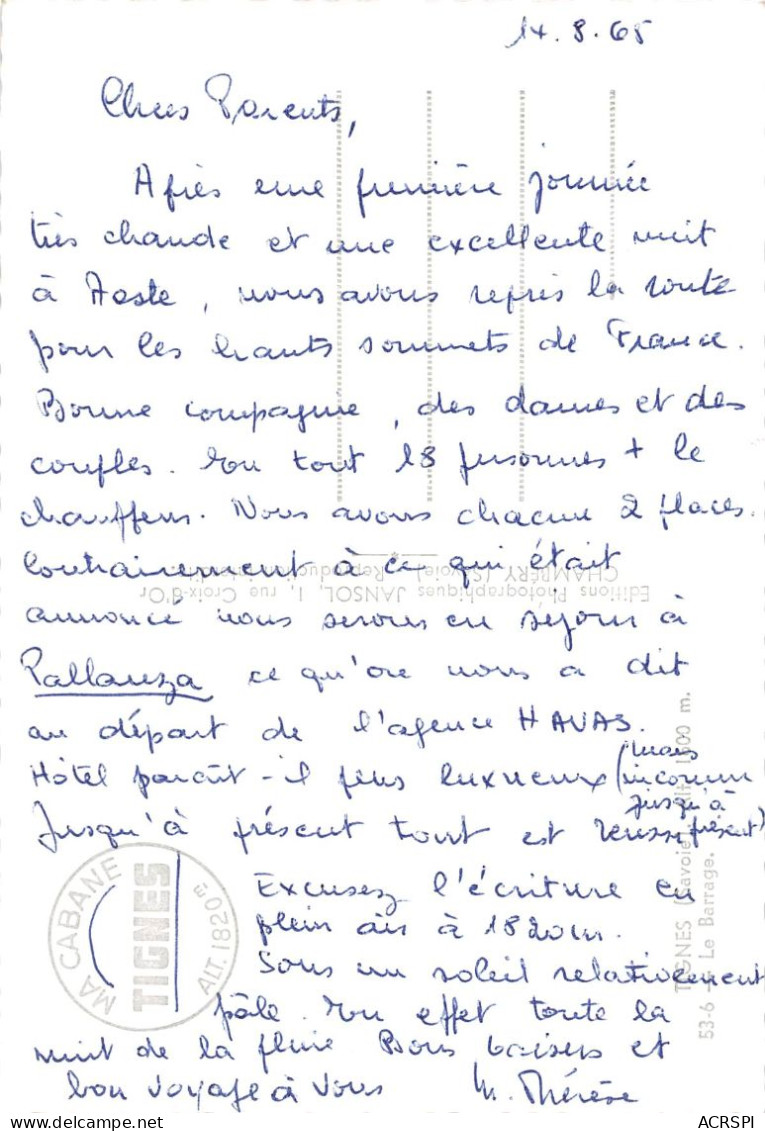 14.8.65
Chers Parents,
Après une première journée
très chaude et une excellente nuit
à Aoste, nous avons repris la route
pour les hauts sommets de France.
Bonne compagnie, des dames et des
couples. En tout 18 personnes + le
chauffeur. Nous avons chacun 2 places.
Contrairement à ce qui était
annoncé nous serons en séjour à
Pallanza ce qu'on nous a dit
au départ de l'agence HAVAS.
Hôtel paraît-il plus luxueux (mais
inconnu
jusqu'à
présent)
Jusqu'à présent tout est réussi
Excusez l'écriture en
plein air à 1820m.
Sous un soleil relativement
pâle. En effet toute la
nuit de la pluie Bons baisers et
bon voyage à vous M. Thérèse
MA CABANE
TIGNES
ALT. 1820 m
Editions Photographiques JANSOL, 1, rue Croix-d'Or
CHAMBÉRY (Savoie) - Reproduction
TIGNES (Savoie) alt. 1800 m.
53-6 Le Barrage.
ACRSPI